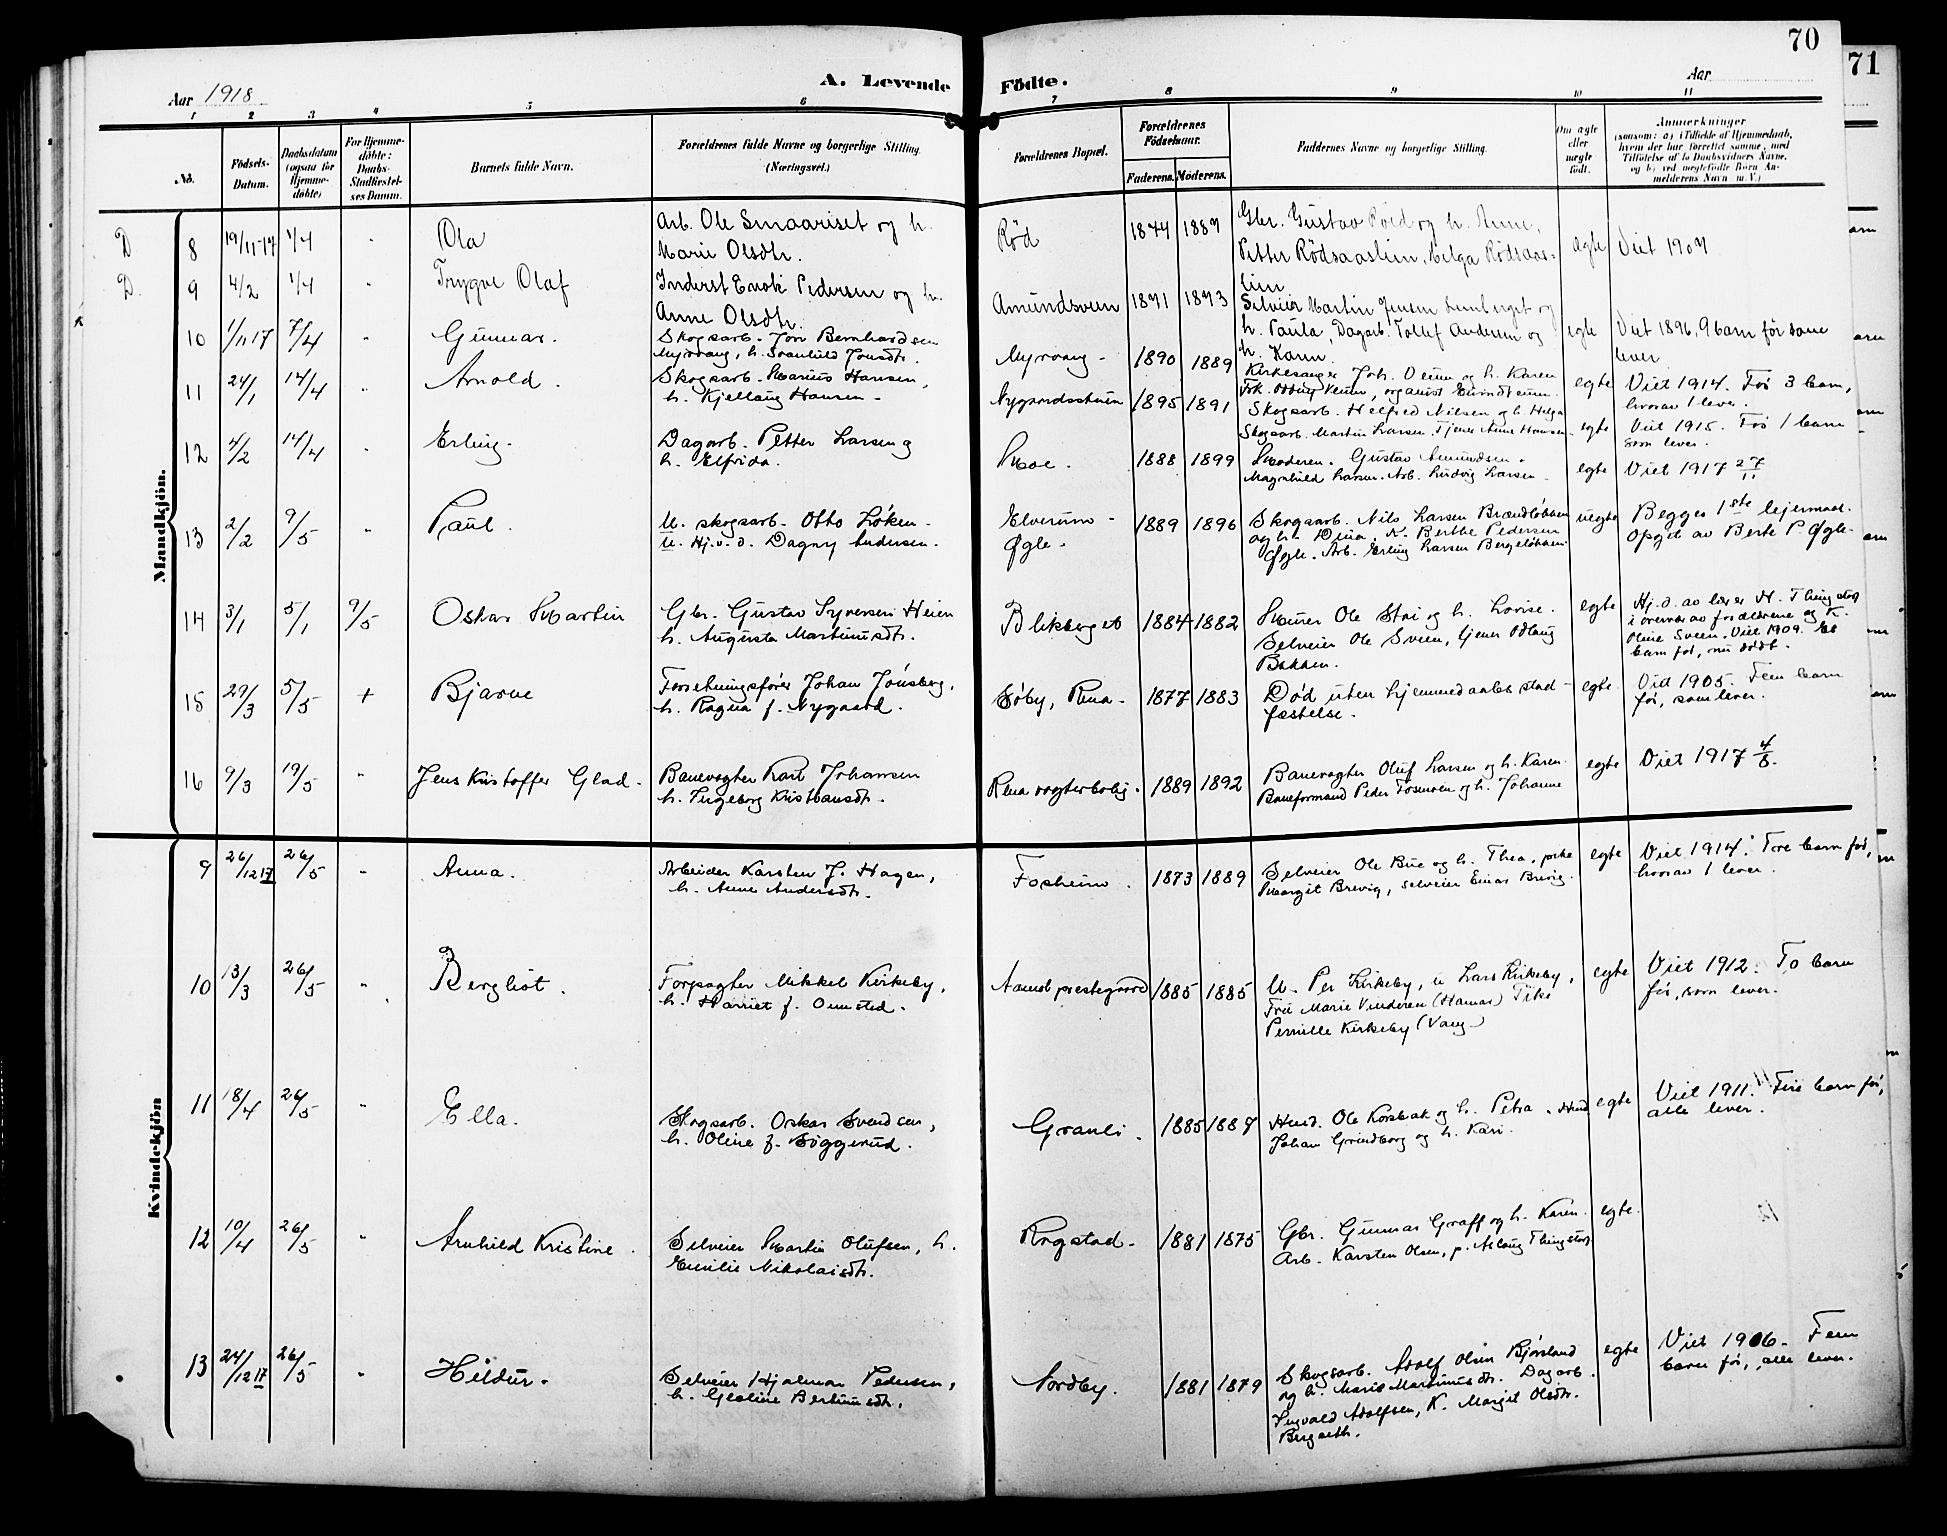 70
71
Aar 1918
A. Levende Födte.
Aar
1 2 3 4 5 6 7 8 9 10 11
No.
Födsels-
Datum.
Daabsdatum
(ogsaa for
Hjemme-
döbte)
For Hjemme-
döbte:
Daabs-
Stadfæstel-
ses Datum.
Barnets fulde Navn.
Forældrenes fulde Navne og borgerlige Stilling
(Næringsvei.)
Forældrenes Bopæl.
Forældrenes
Födselsaar.
Faderens. Moderens.
Faddernes Navne og borgerlig Stilling.
Om ægte
eller
uægte
födt.
Anmerkninger
(saasom: a) i Tilfælde af Hjemmedaab,
hvem der har forrettet samme, med
Tilföielse af to Daabsvidners Navne,
og b) ved uægtefödte Börn An-
melderens Navn m. V.)
Mandkjön.
D 8 19/11-17 1/4 " Ola
Arb. Ole Smaariset og h.
Marie Olsdtr.
Röd 1874 1887
Gbr. Gustav Röd og h. Anne,
Petter Rödsaaslien, Helga Rödsaas-
lien
ægte Viet 1907
D. 9 4/2 1/4 " Trygve Olaf
Inderst Enok Pedersen og h.
Anne Olsdtr.
Amundsveen 1871 1873
Selveier Martin Jensen og
h. Paula, Dagarb. Tollef Andersen og
h. Karen.
egte Viet 1896, 9 barn før som
lever
10 1/11 17 7/4 " Gunnar.
Skogsarb. Jon Bernhardsen
Myrvang, h. Svanhild Jonsdtr.
Myrvang - 1890 1889
Kirkesanger Joh. Veum og h. Karen
Frk. Veum, organist
egte Viet 1914. Før 3 barn,
hvorav 1 lever.
11 24/1 14/4 " Arnold.
Skogsarb. Marius Hansen,
h. Kjellaug Hansen -
Nygaardsstuen 1895 1891
Skogsarb. Helfred Nilsen og h. Helga
Skogsarb. Martin Larsen. Tjener Anne Hansen
egte Viet 1915. Før 1 barn
som lever.
12 4/2 14/4 " Erling.
Dagarb. Petter Larsen og
h. Elfrida.
Moe. 1888 1899
Moderen. Gustav Amundsen.
Magnhild Larsen. Arb. Ludvig Larsen -
egte Viet 1917 27/11
13 2/2 9/5 " Paul.
U. skogsarb. Otto Løken -
U. Hj.v.d. Dagny Andersen.
Elverum -
Øgle. 1889 1896
Skogsarb. Nils Larsen Brændløkken
og h. Dina. K. Berthe Pedersen
Øgle. Arb. Erling Larsen Bergeløkken
uegte Begges 1ste lejermaal.
Opgit av Berte P. Øgle.
14 3/1 5/1 9/5 Oskar Martin
Gbr. Gustav Syversen Heien
h. Augusta Martinusdtr.
Blikberget 1884 1882
Murer Ole Stai og h. Lovise.
Selveier Ole Sveen, tjener Odlaug
Bakken.
egte Hj.d. av lærer H. Thingstad
i overvær av forældrene og K.
Oline Sveen. Viet 1909. Et
barn før, nu dødt.
15 29/3 5/5 + Bjarne
Forretningsfører Johan Jønsberg,
h. Ragna f. Nygaard.
Søby, Rena. 1877 1883
Død uten hjemmedaabs stad-
fæstelse.
egte Viet 1905. Fem barn
før, som lever.
16 9/3 19/5 " Jens Kristoffer Glad.
Banevogter Karl Johansen
h. Ingeborg Kristiansdtr.
Rena vogterbolig. 1889 1892
Banevogter Oluf Larsen og h. Karen.
Baneformand Peder Fosmoen og h. Johanne
egte Viet 1917 4/8.
Kvindekjön
9 26/12 17 26/5 " Anna.
Arbeider Karsten J. Hagen,
h. Anne Andersdtr.
Fosheim. 1873 1889
Selveier Ole Bue og h. Thea. pike
Margit Brevig, selveier Einar Brevig.
egte Viet 1914. Tre barn før,
hvorav 1 lever.
10 13/3 26/5 " Bergliot.
Forpagter Mikkel Kirkeby,
h. Harriet f. Omsted.
Aamot prestegaard 1885 1885
U. Per Kirkeby, u Lars Kirkeby,
Fru Marie Vinderen (Hamar) Pike
Pernille Kirkeby (Vang)
egte Viet 1912. To barn
før, som lever.
11 18/4 26/5 " Ella.
Skogsarb. Oskar Svendsen,
h. Oline f. Siggerud.
Granli. 1885 1887
Husd. Ole Korsbak og h. Petra. Husd
Johan Grindborg og h. Kari.
egte Viet 1911. Fire barn før,
alle lever.
12 10/4 26/5 " Arnhild Kristine.
Selveier Martin Olufsen, h.
Emilie Nikolaisdtr.
Rogstad. 1881 1875
Gbr. Gunnar Graff og h. Karen.
Arb. Karsten Olsen, p. Aslaug Thingstad
egte.
13 24/12 17 26/5 " Hildur.
Selveier Hjalmar Pedersen,
h. Gesline Bertinusdtr.
Nordby. 1881 1879
Skogsarb. Adolf Olsen Bjørsland
og h. Marie Martinusdtr. Dagarb.
Ingvald Adolfsen, K. Margit Olsdtr.
Bergseth.
egte Viet 1906. Fem
barn før, alle lever.